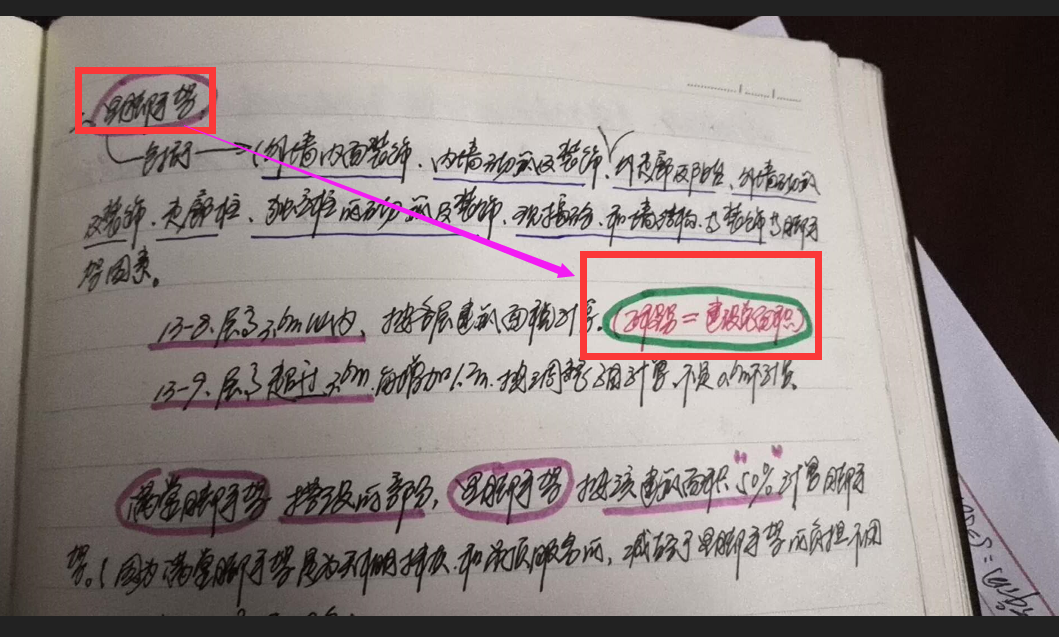 里脚手架
包括 →(外墙内面装饰、内墙砌筑及装饰、外走廊及阳台、外墙砌筑
及装饰、走廊柱、独立柱的砌筑及装饰、现捣砼和墙结构、与装饰等脚手
架因素。
13-8.层高3.6m以内、按各层建筑面积计算。(工程量=建设总面积)
13-9.层高超过3.6m、每增加1.2m.按调整项目计算、不足0.6m不计算
满堂脚手架 搭设的部分,里脚手架 按该建筑面积"50%"计算脚手
架。(因为满堂脚手架是为天棚 和 服务的,减轻了里脚手架的负担不用